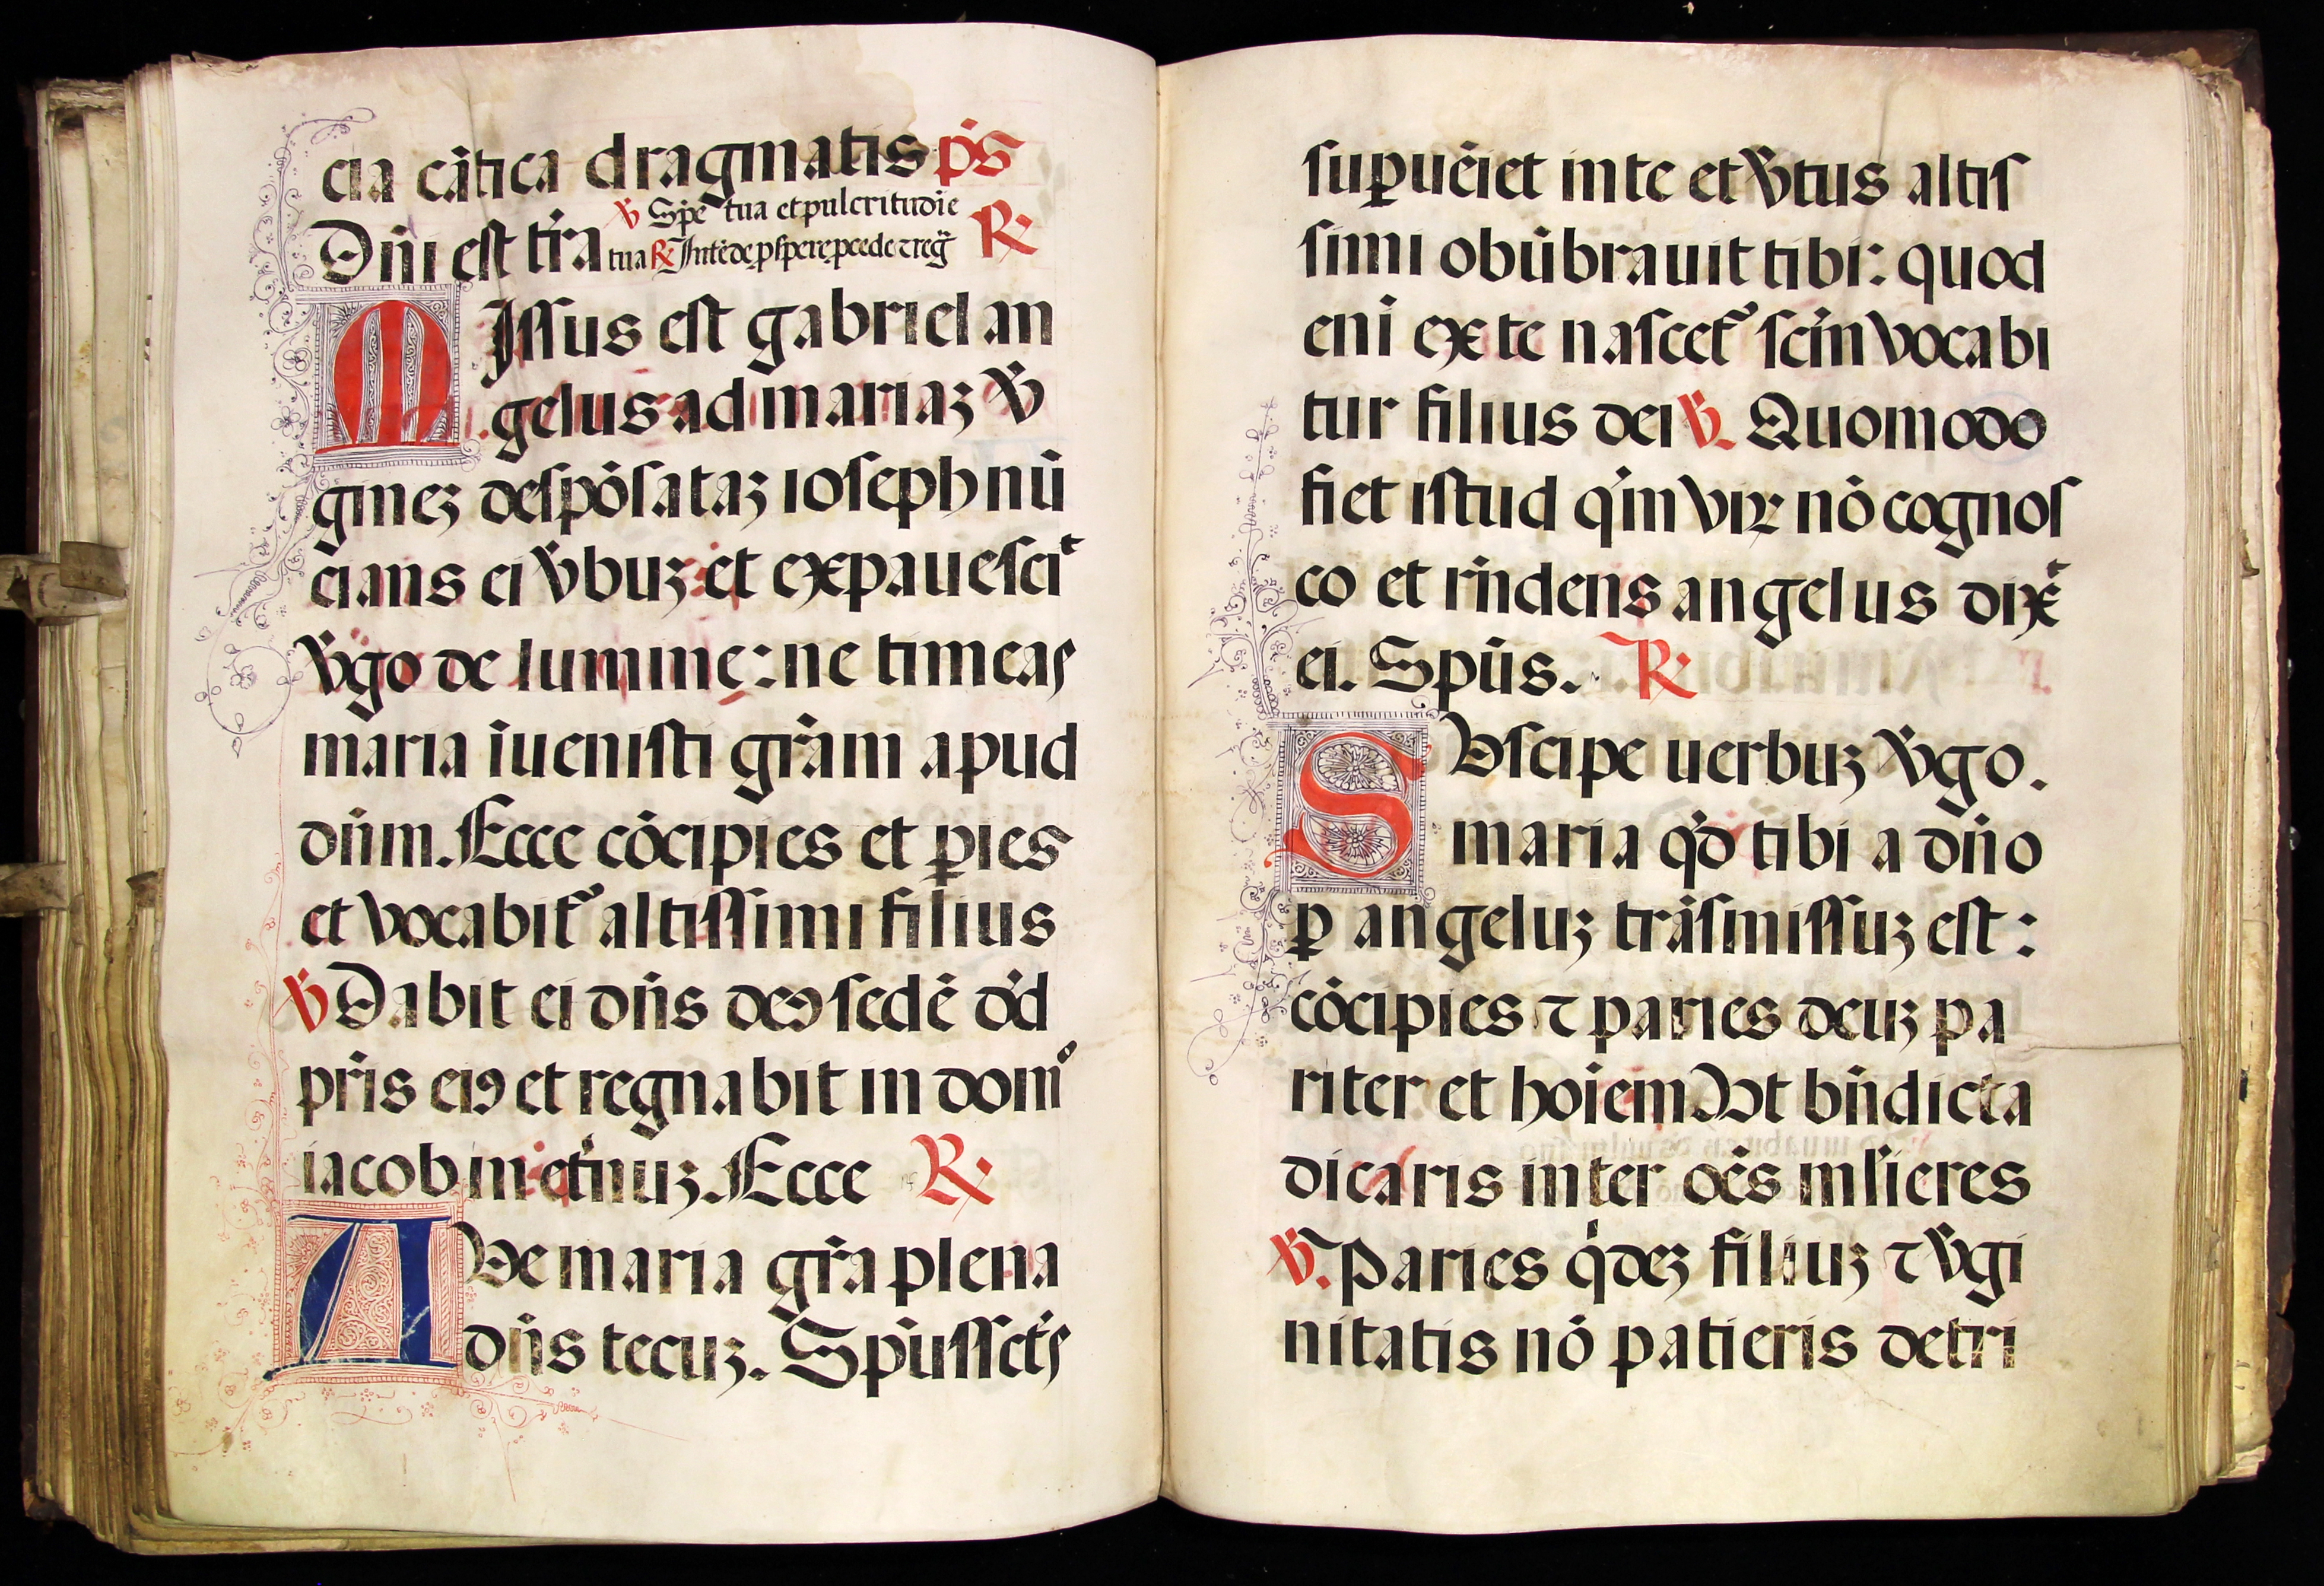 cia cātica dragmatis p̄s
Dn̄i est tr̄ra ℣ Spē tua et pulcritudīe
tua ℟ Intēde p̱spere p̱cede ⁊ reḡ ℟
MIssus est gabriel an
gelus ad mariaꝫ v̄
gineꝫ despōsataꝫ ioseph nū
cians ei v̄buꝫ et expauescit
v̄go de lumine: ne timeas
maria īuenisti gr̄am apud
dn̄m. Ecce cōcipies et ꝑies
et vocabit᷑ altissimi filius
℣ Dabit ei dn̄s deꝯ sedē dd̄
pr̄is eiꝯ et regnabit in domͦ
iacob in et̄nuꝫ. Ecce ℟
AVe maria gr̄a plena
dn̄s tecuꝫ. Spūssct̄s
suꝑuēiet in te et v̄tus altis
simi obūbrauit tibi: quod
enī ex te nascet᷑ sc̄m vocabi
tur filius dei ℣. Quomodo
fiet istud qm̄ viꝝ nō cognos
co et rn̄dens angelus dixͭ
ei. Spūs. ℟
SVscipe uerbuꝫ v̄go.
maria qd̄ tibi a dn̄o
ꝑ angeluꝫ trāsmissuꝫ est:
cōcipies ⁊ paries deuꝫ pa
riter et hoīem Vt bn̄dicta
dicaris inter oēs mlieres
℣. Paries q̇deꝫ filiuꝫ ⁊ v̄gi
nitatis nō patieris detri